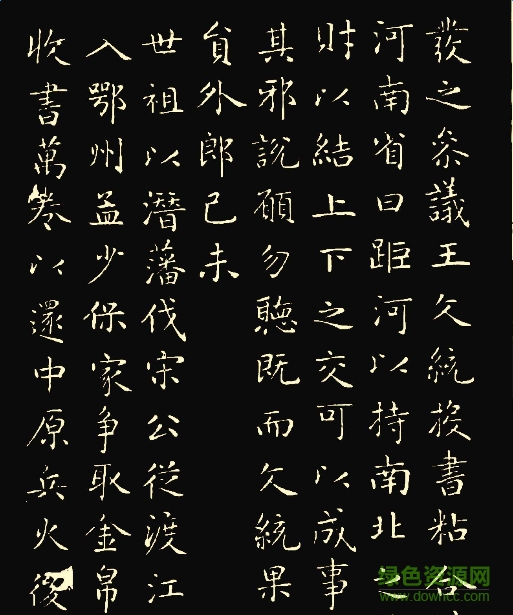 發之參議王文統投書粘合
河南省曰距河以持南北之
財以結上下之交可以成事
其邪說願勿聽既而文統果
貟外郎己未
世祖以潛藩伐宋公從渡江
入鄂州益少保家争取金帛
收書萬卷以還中原兵火後
绿色资源网
www.downcc.com